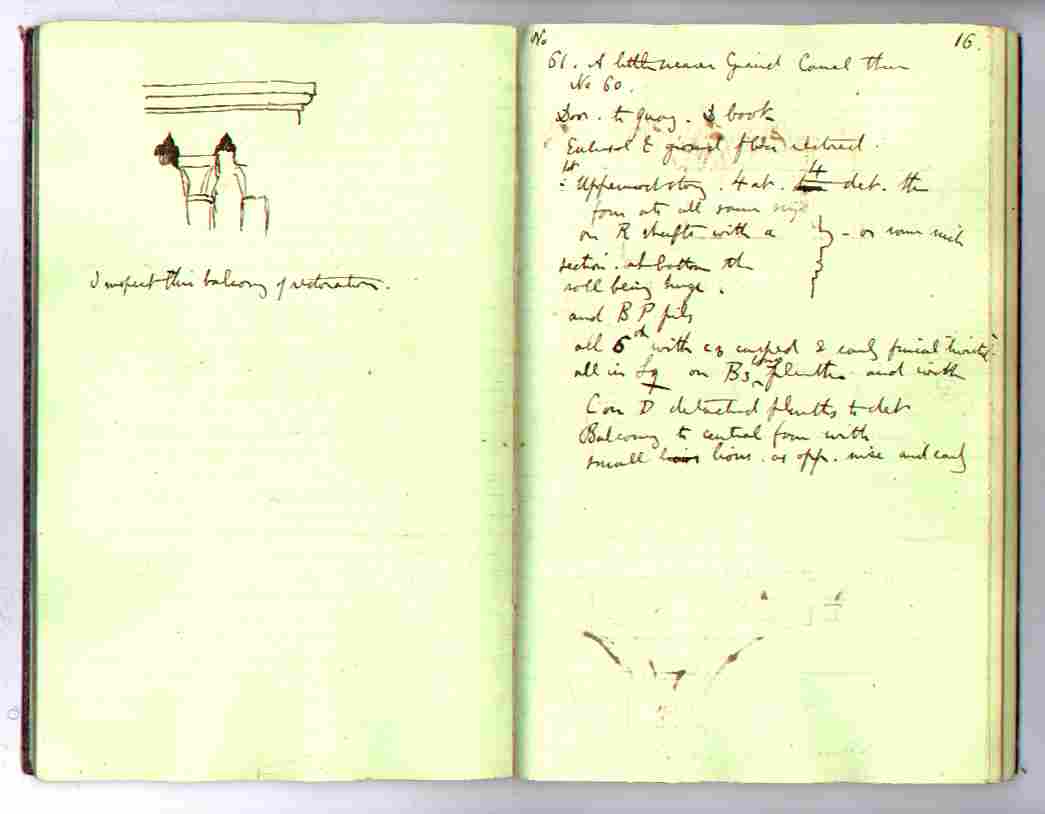 I suspect this balcony of restoration.
No
16.
61. A little nearer Grand Canal than
No 60.
Door. to quay. D book
Entresol & ground floor restored.
1st Uppermost story. 4 at. 4 det. the
four ats all same
on R shafts with a – or some such
section. at bottom the
roll being huge.
and B P pils
all 5th with cusped & early finial
all in Sq on B3 plinths and with
Con D detached plinths to det
Balcony to central four with
small lions. as opp. nice and early